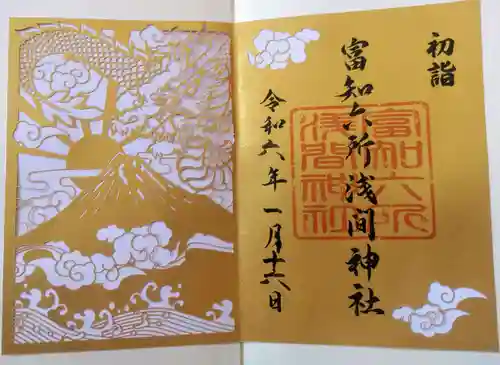 初詣
富知六所浅間神社
令和六年 一月十六日
富知六所
浅間神社